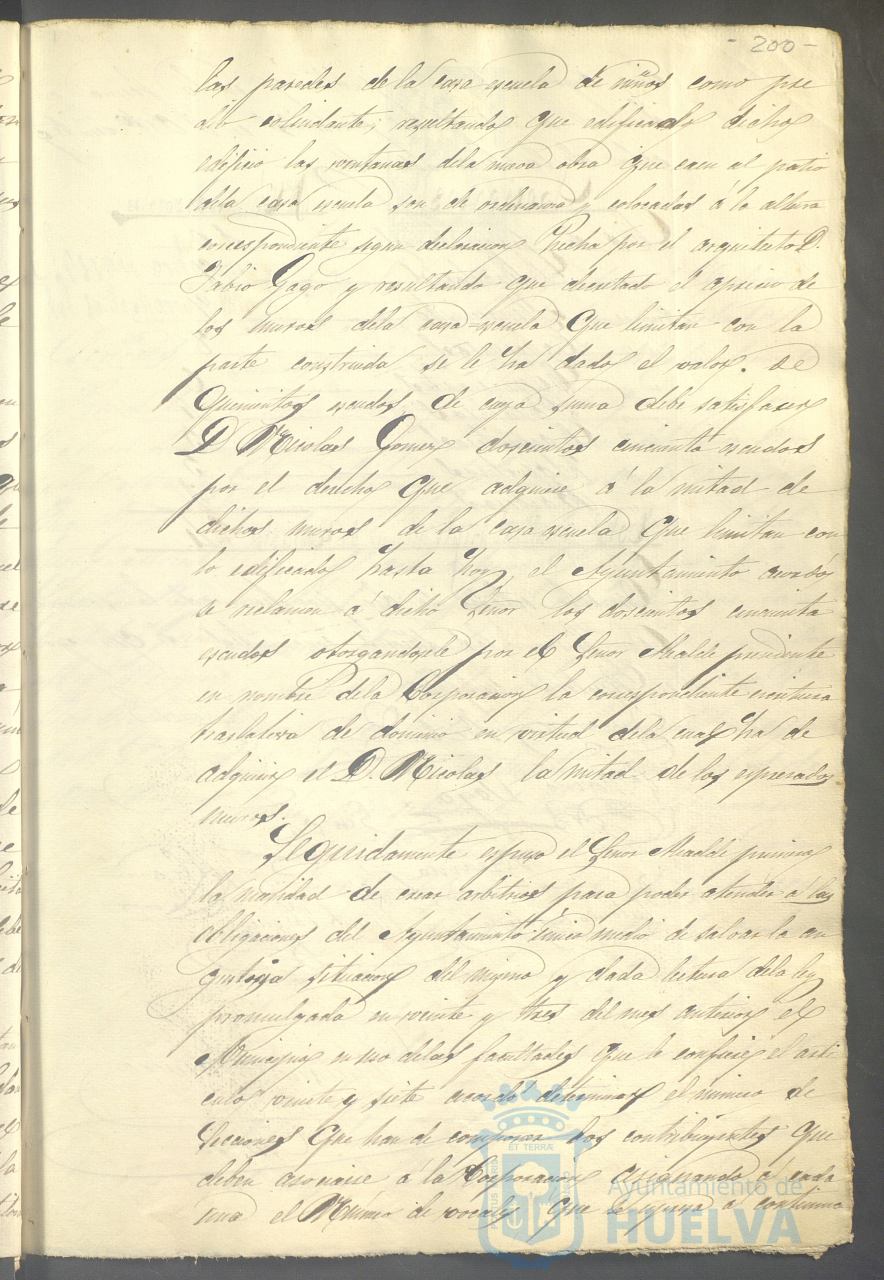 - 200 -
las paredes de la casa escuela de niños como pre
dio colindante; resultando que edificado dicho
edificio las ventanas dela nueva obra que caen al patio
dela casa escuela son de ordenanza y colocadas á la altura
correspondiente segun declaracion hecha por el arquitecto D.
Pablo Gago y resultando que ejecutado el aprecio de
los muros dela casa-escuela que limitan con la
parte construida se le ha dado el valor de
quinientos escudos de cuya suma debe satisfacer
D Nicolas Gomez doscientos cincuenta escudos
por el derecho que adquiere á la mitad de
dichos muros de la casa escuela que limitan con
lo edificado hasta hoy, el Ayuntamiento acordó
se reclamen á dicho Señor los doscientos cincuenta
escudos otorgandosele por el Señor Alcalde presidente
en nombre dela Corporacion la correspondiente escritura
traslativa de dominio en virtud dela cual ha de
adquirir el D. Nicolas la mitad de los espresados
muros.
Seguidamente espuso el Señor Alcalde primero
la necesidad de crear arbitrios para poder atender a las
obligaciones del Ayuntamiento unico medio de salvar la an
gustiosa situacion del mismo y dada lectura dela ley
promulgada en veinte y tres del mes anterior el
Municipio en uso delas facultades que le confiere el arti
culo veinte y siete acordó determinar el numero de
Secciones que han de componer los contribuyentes que
deben asociarse á la Corporacion asignando á cada
una el Número de vocales que se espresa á continua
ET TERRAE
Ayuntamiento de
HUELVA